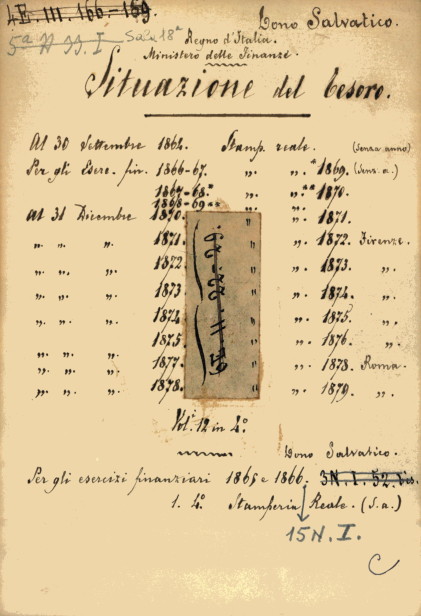 4E. III. 166-159. Dono Salvatico.
5ª N 99. I Sala 18ª
Regno d'Italia.
Ministero delle Finanze.
Situazione del Tesoro.
Al 30 Settembre 1864. Stamp. reale. (senza anno)
Per gli Eserc. fin. 1866-67. „ „ * 1869. (Senz. a.)
1867-68.* „ „ ** 1870.
1868-69** „ „
al 31 Dicembre 1870. „ 1871.
„ „ „ 1871. „ „ 1872. Firenze.
„ „ „ 1872 „ „ 1873. „
„ „ „ 1873 „ „ 1874. „
„ „ „ 1874 „ „ 1875. „
1875 „ „ 1876 „
„ „ „ 1877. „ „ 1878. Roma.
„ „ „ 1878. „ „ 1879. „
Vol. 12 in 4.º
Dono Salvatico.
Per gli esercizi finanziari 1865 e 1866. 3N. I. 52. bis.
1. 4.º Stamperia Reale. (S. a.)
15 N. I.
C